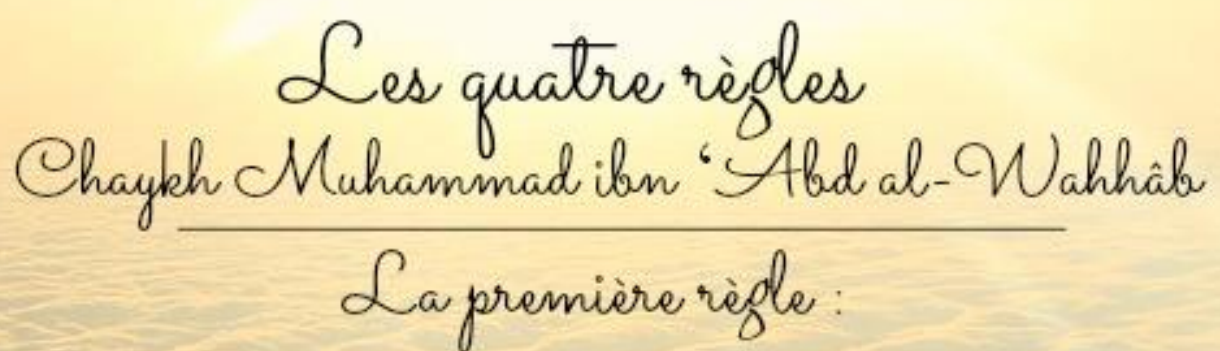 Les quatre règles
Chaykh Muhammad ibn ‘Abd al-Wahhâb
La première règle :